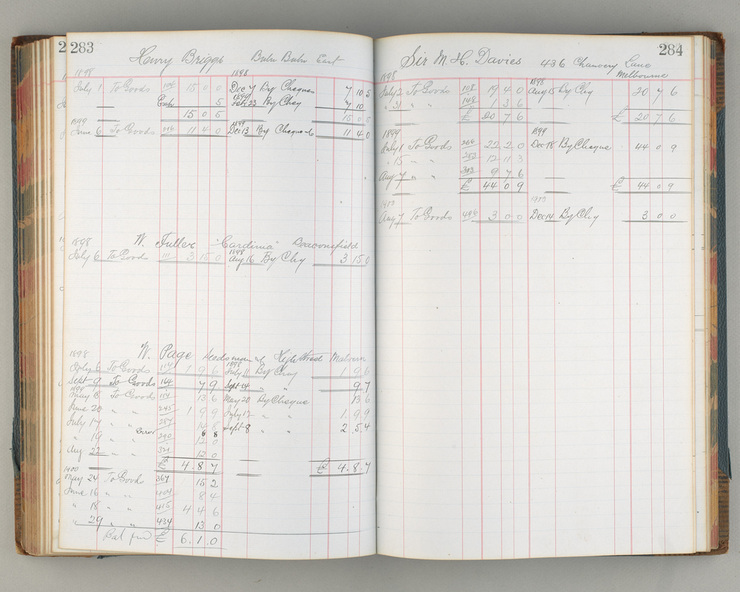 283
Henry Briggs Baln Baln East
1898 1898
July 1 To Goods 15 0 0 Dec 7 By Cheque 7 10 5
Cash 5 1899 Feb 23 By Chq 7 10
15 0 5 15 0 5
1899
June 6 To Goods 11 4 0 Dec 13 By Cheque 11 4 0
1898 W. Fuller "Gardinia" Deaconsfield
July 6 To Goods 3 15 0 1898 Aug 16 By Chq 3 15 0
W. Page Seedsman High Street Malvern
1898
To Goods 1 9 6 1898 July 11 By Chq 1 9 6
Sept 9 To Goods 164 7 9 Sept 14 " " 9 7
To Goods 13 6 May 20 By Cheque 13 6
June 20 " " 245 1 9 9 July 12 " " 1 9 9
July 14 " " Sept 8 " " 2 5 4
" 19 " " Error 6 8
12 0
Aug 22 " " 12 0
£ 4 8 7 £ 4 8 7
1900
May 24 To Goods 367 15 2
June 16 " " 8 4
" 18 " " 415 4 4 6
" 29 " " 434 13 0
£ 6 1 0
284
Sir M. H. Davies 436 Chancery Lane
Melbourne
1898 1898
July 2 To Goods 148 19 4 0 Aug 15 By Chq 20 7 6
" 21 " " 148 1 3 6
£ 20 7 6 £ 20 7 6
1899 1899
July 1 To Goods 22 2 0 Dec 18 By Cheque 44 0 9
" 15 " " 12 11 3
Aug 7 " " 9 7 6
£ 44 0 9 £ 44 0 9
Aug 7 To Goods 3 0 0 Dec 14 By Chq 3 0 0